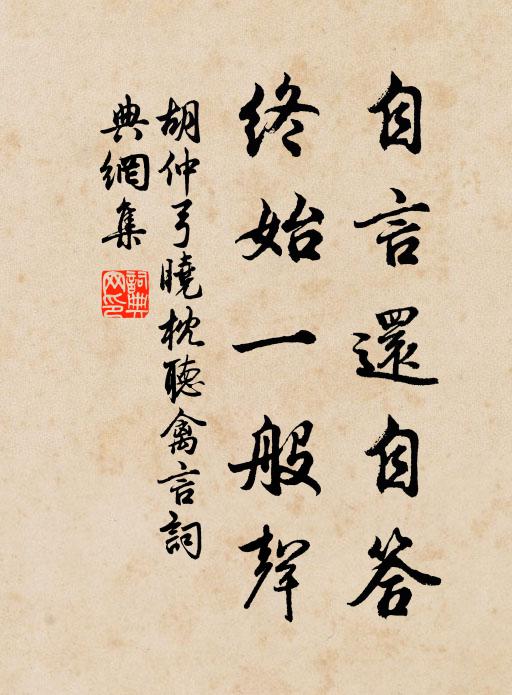 自言還自答
終始一般聲
胡仲弓曉枕聽禽言詞
典網集
詞典网印